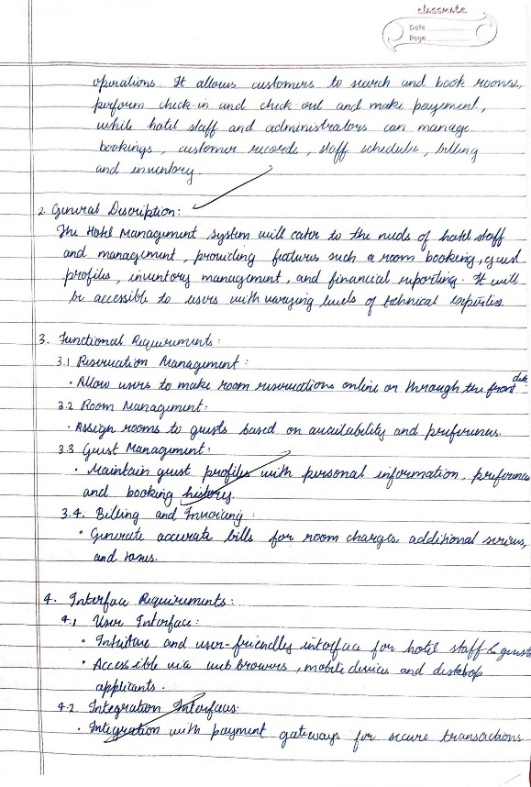 classmate
Date
Page
operations. It allows customers to search and book rooms,
perform check-in and check-out and make payment,
while hotel staff and administrators can manage
bookings, customer records, staff schedules, billing
and inventory.
2. General Description:
The Hotel Management system will cater to the needs of hotel staff
and management, providing features such a room booking, guest
profiles, inventory management, and financial reporting. It will
be accessible to users with varying levels of technical expertise.
3. Functional Requirements:
3.1 Reservation Management:
• Allow users to make room reservations online or through the front desk
3.2 Room Management:
• Assign rooms to guests based on availability and preferences.
3.3 Guest Management:
• Maintain guest profiles with personal information, preference
and booking history.
3.4. Billing and Invoicing:
• Generate accurate bills for room charges, additional services,
and taxes.
4. Interface Requirements:
4.1 User Interface:
• Intuitive and user-friendly interface for hotel staff & guests
• Accessible via web browers, mobile devices and desktop
applicants.
4.2. Integration Interfaces:
• Integration with payment gateways for secure transactions